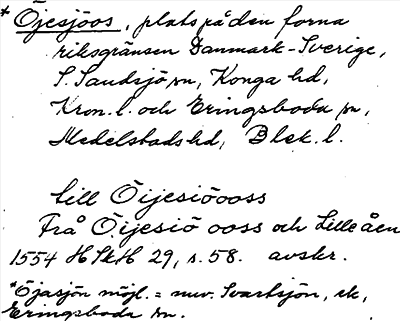 * Öjesjöos, plats på den forna
riksgränsen Danmark-Sverige,
S. Sandsjö sn, Konga hd,
Kron. l. och Eringsboda sn,
Medelstads hd, Blek. l.
till Öijesiöooss
Från Öijesiö ooss och Lilleåen
1554 HSkH 29, s. 58. avskr.
* Öjasjön möjl. = nuv. Svartsjön, ek,
Eringsboda sn.